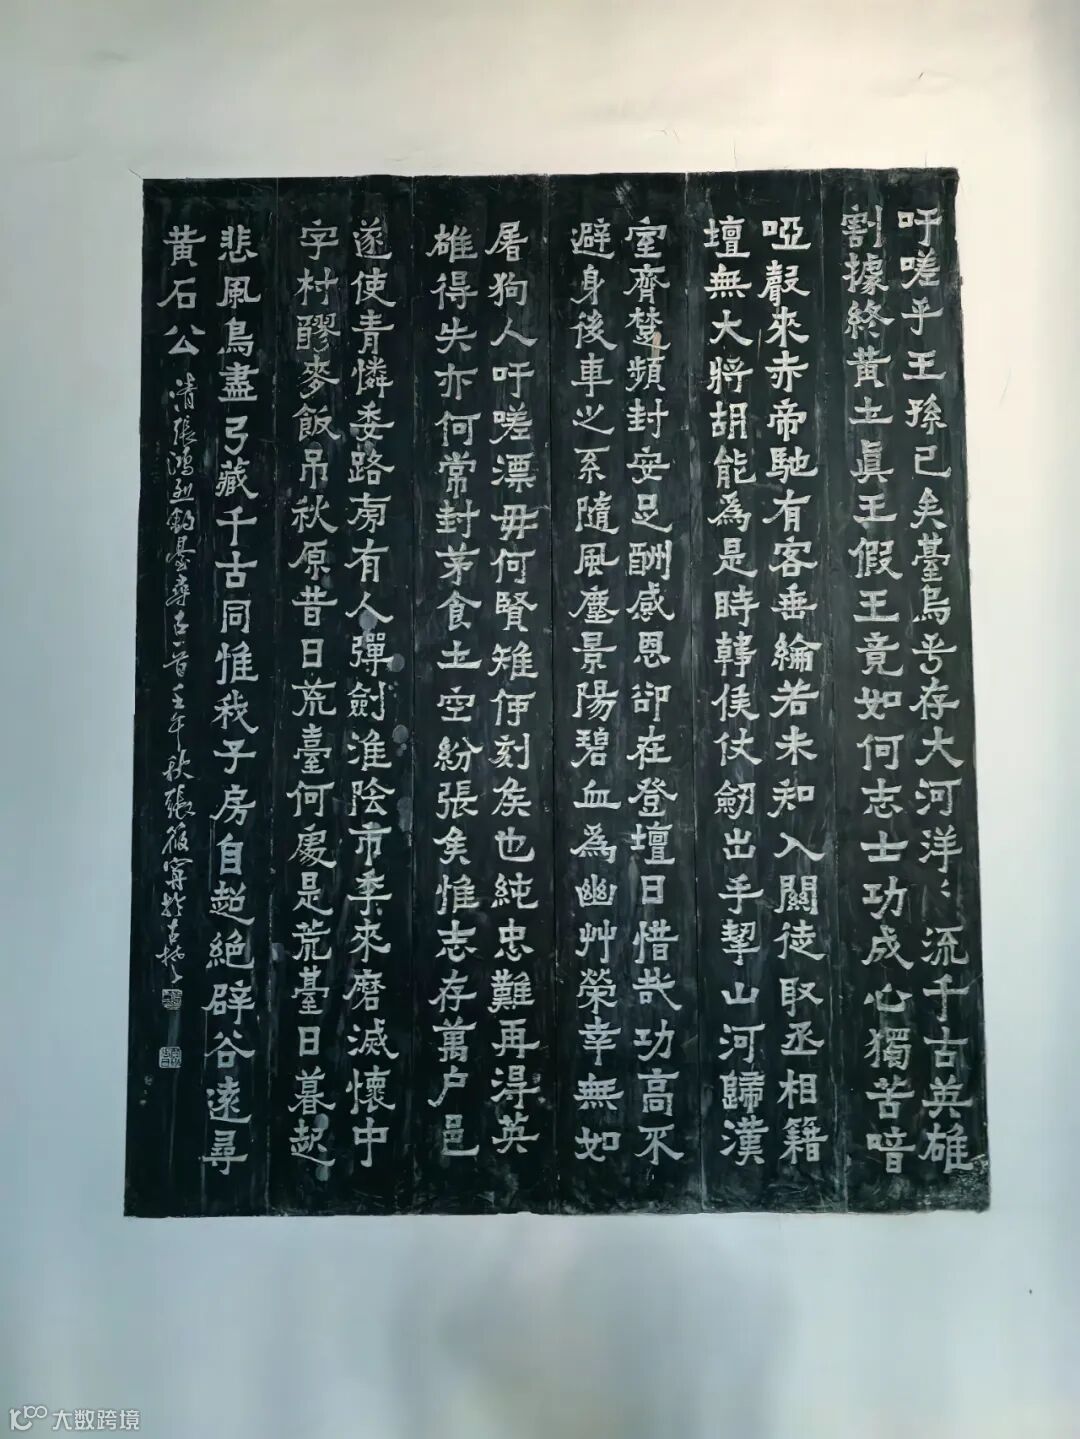 吁嗟乎王孫已矣臺烏乎存大河洋〻流千古英雄
割據終黄土真王假王竟如何志士功成心獨苦喑
啞聲來赤帝馳有客垂綸若未知入關徒取丞相籍
壇無大將胡能為是時韓侯仗劒出手挈山河歸漢
室齊楚頻封安足酬感恩卻在登壇日惜哉功高不
避身後車之系隨風塵景陽碧血為幽艸榮幸無如
屠狗人吁嗟漂毋何賢雉何刻矦也純忠難再得英
雄得失亦何常封茅食土空紛張矦惟志存萬户邑
遂使青憐委路旁有人彈劍淮陰市季來磨滅懷中
字村醪麥飯吊秋原昔日荒臺何處是荒臺日暮起
悲風鳥盡弓藏千古同惟我子房自超絶辟谷遠尋
黄石公
清張鴻烈釣臺尋古一首壬午秋張筱寧於古楚
大数跨境